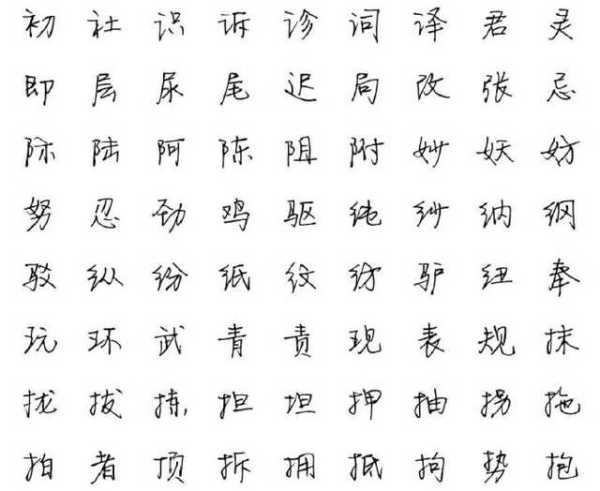 初 社 识 诉 诊 词 译 君 灵
即 层 尿 尾 迟 局 改 张 忌
际 陆 阿 陈 阻 附 妙 妖 妨
努 忍 劲 鸡 驱 纯 纱 纳 纲
驳 纵 纷 纸 纹 纺 驴 纽 奉
玩 环 武 青 责 现 表 规 抹
拢 拔 拣 担 坦 押 抽 拐 拖
拍 者 顶 拆 拥 抵 拘 势 抱